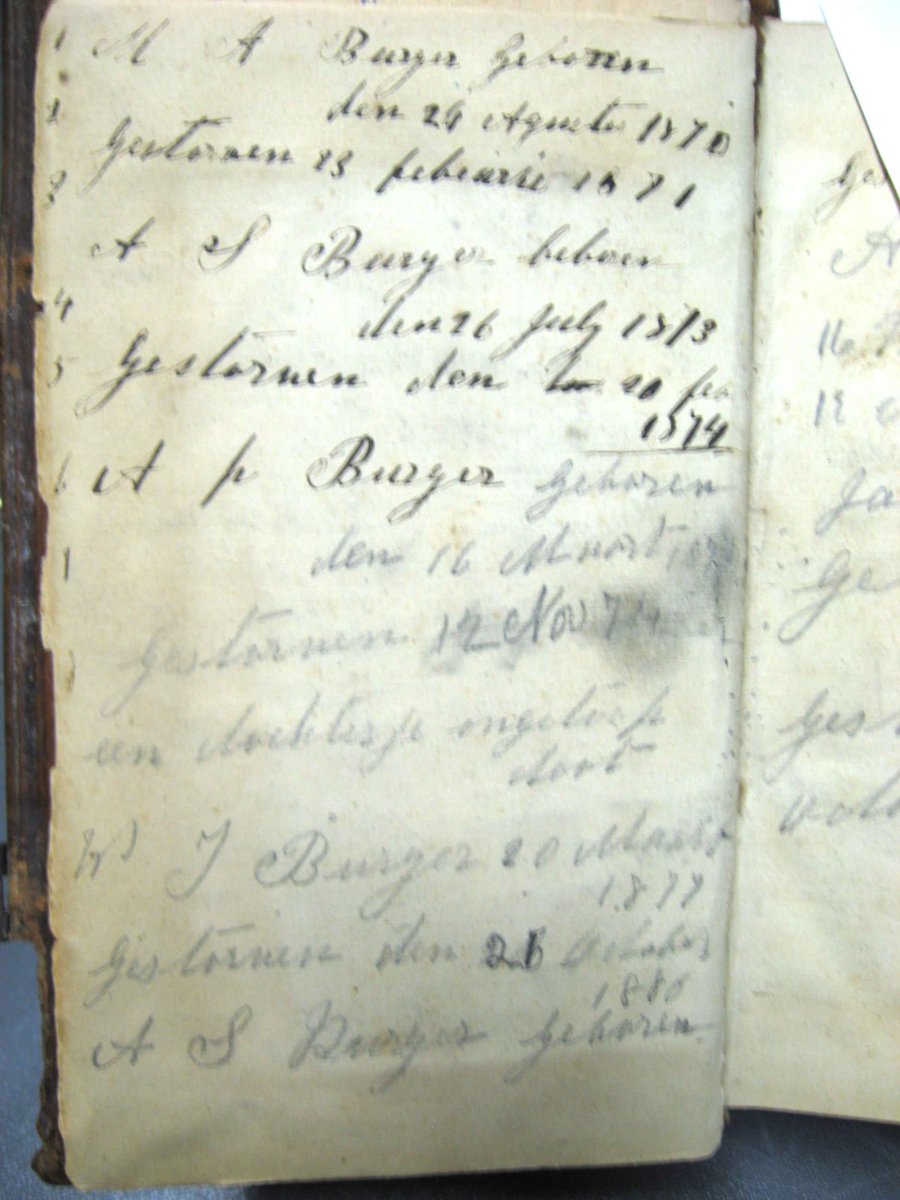 M A Burger Geboren
den 24 Agusts 1870
Gestorven 23 febuarie 1871
A S Burger beboren
den 26 July 1873
Gestorven den 20 feb
1874
A p Burger geboren
den 16 Maart
Gestorven 12 Nov 74
een dochterje ongetoop
doot
W J Burger 20 Maart
1877
Gestorven den 21 October
1880
A S Burger geboren
Ges
A
16
12
Ja
Ge
Gest